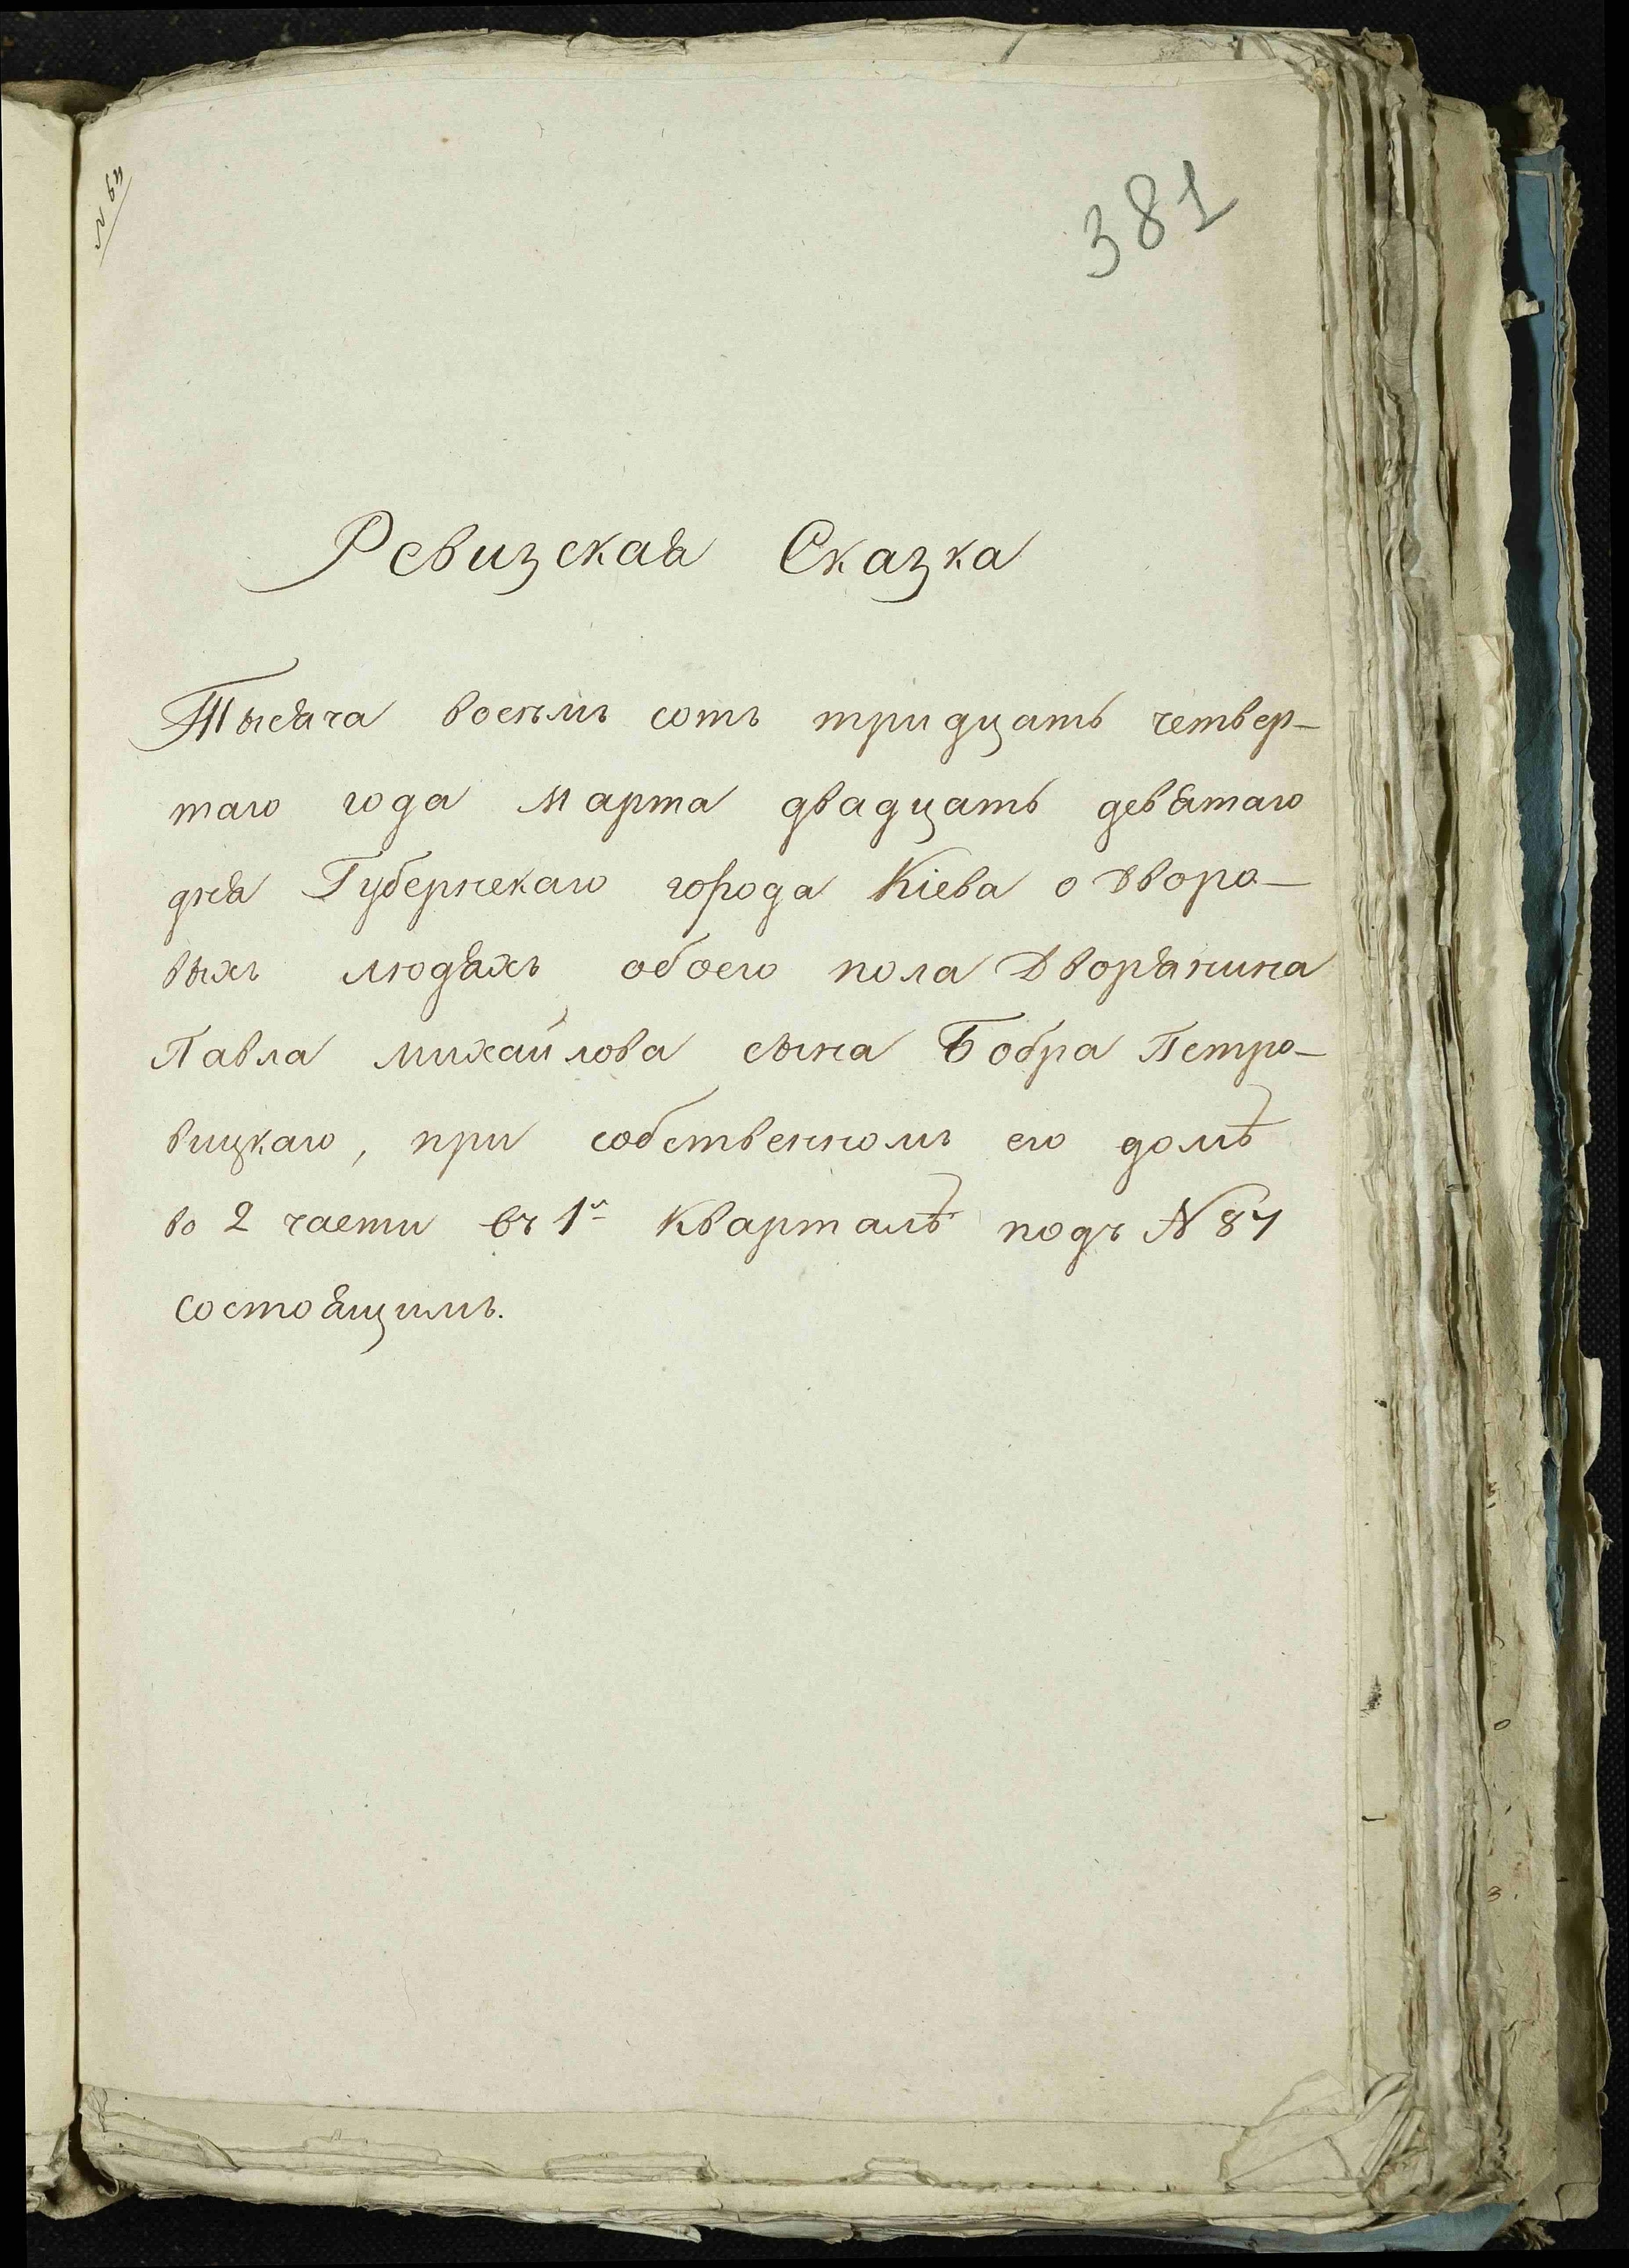 381
Ревизская Сказка
Тысяча восемь сотъ тридцать четвер-
таго года марта двадцать девятаго
дня Губернскаго города Кіева о Дворо-
выхъ людяхъ обоего пола Дворянина
Павла михайлова сына Бобра Петро-
вицкаго, при собственномъ его домѣ
во 2 части въ 1й кварталѣ подъ N 87
состоящимъ.